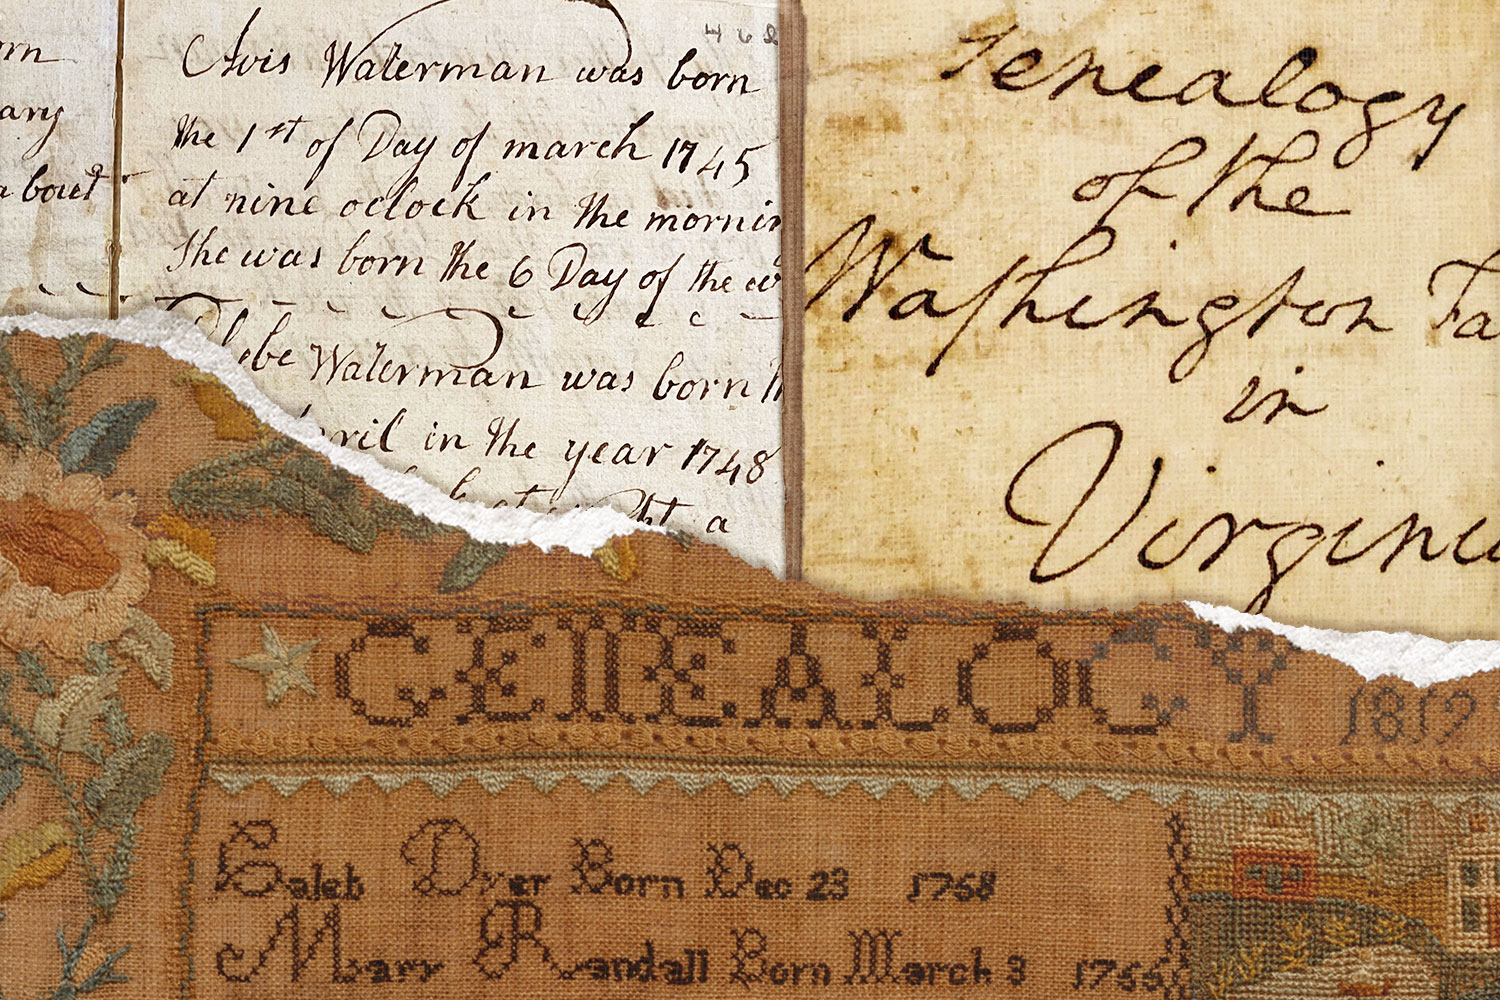 rn
ary
about
468
Avis Waterman was born
the 1st of Day of march 1745
at nine oclock in the mornin
She was born the 6 Day of the w
Phebe Waterman was born th
April in the year 1748
at a
Genealogy
of the
Washington Fa
in
Virginia
GENEALOGY 1819
Caleb Dyer Born Dec 23 1768
Mary Randall Born March 3 1766